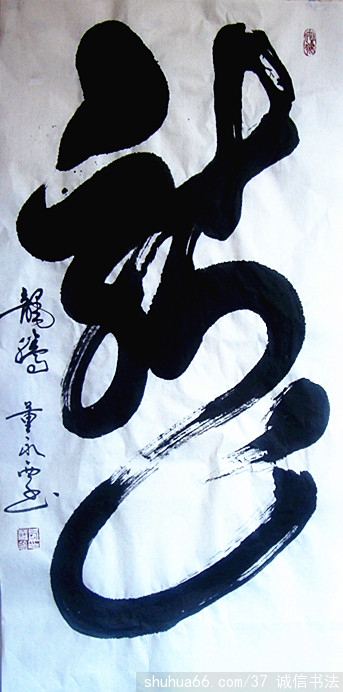 龍
龍騰
董永
shuhua66.com/37 诚信书法